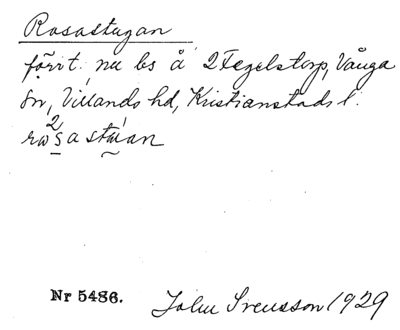 Rosastugan
förit. nu bs å 2 Tegelstorp, Vånga
sn, Villands hd, Kristianstads l.
John Svensson 1929
Nr 5486.